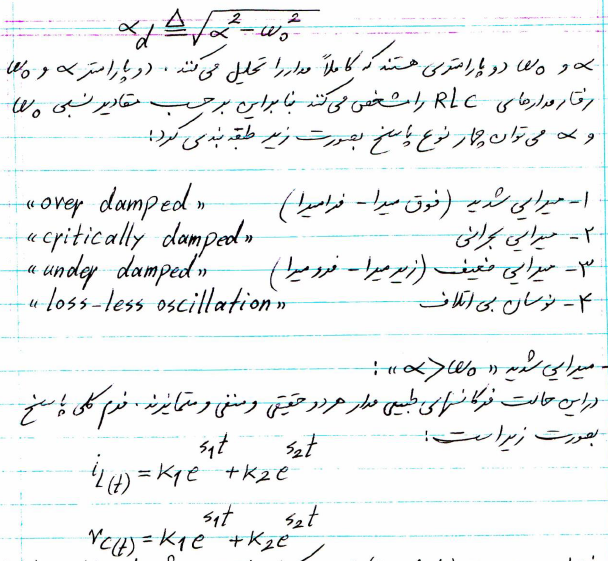 α_d ≜ √(α² - ω₀²)
α و ω₀ دو پارامتری هستند که کاملاً مدار را تحلیل می‌کنند. دو پارامتر α و ω₀
رفتار مدارهای RLC را مشخص می‌کند بنابراین بر حسب مقادیر نسبی ω₀
و α می‌توان چهار نوع پاسخ بصورت زیر طبقه بندی کرد:
۱- میرایی شدید (فوق میرا - فرامیرا) «over damped»
۲- میرایی بحرانی «critically damped»
۳- میرایی ضعیف (زیر میرا - فرو میرا) «under damped»
۴- نوسان بی اتلاف «loss-less oscillation»
- میرایی شدید «α>ω₀» :
در این حالت فرکانسهای طبیعی مدار هر دو حقیقی و منفی و متمایزند. فرم کلی پاسخ
بصورت زیر است:
i_L(t) = K₁e^{s₁t} + K₂e^{s₂t}
v_C(t) = K₁e^{s₁t} + K₂e^{s₂t}